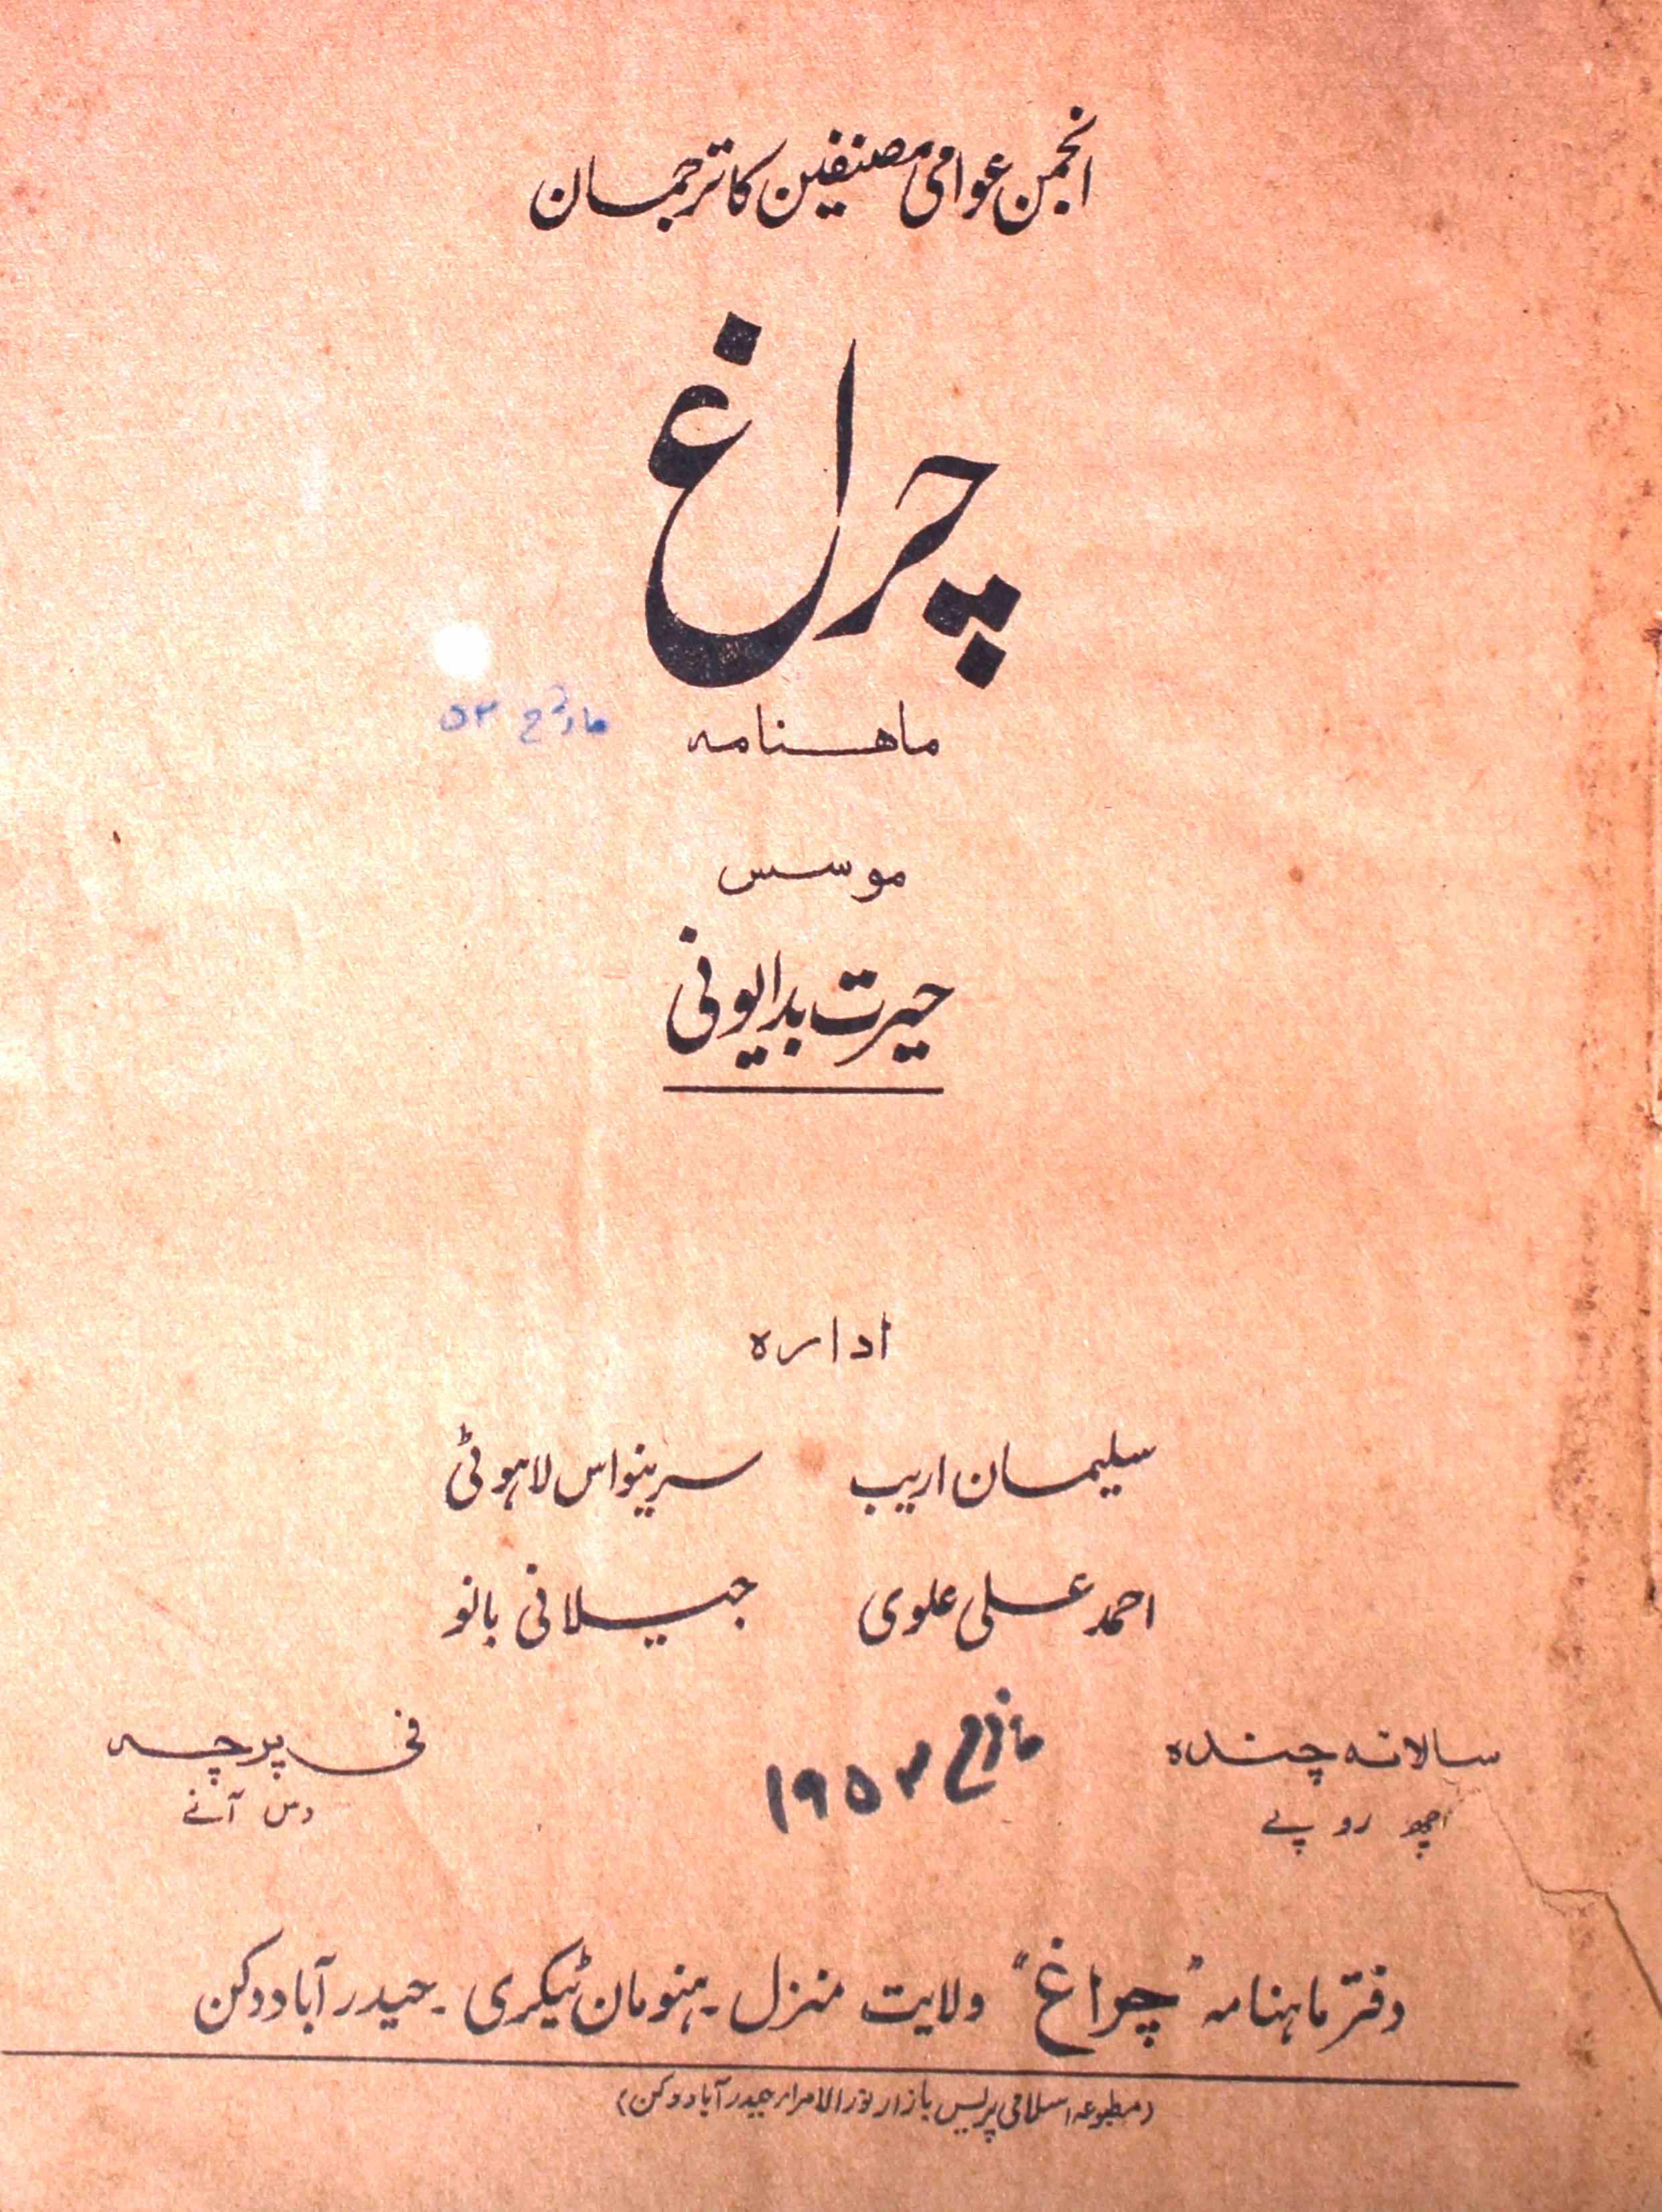 انجمن عوامی مصنفین کا ترجمان
چراغ
ماہنامہ
مارچ ۵۳
موسس
حیرت بدایونی
ادارہ
سلیمان اریب سرینواس لاہوٹی
احمد علی علوی جیلانی بانو
سالانہ چندہ مارچ ۱۹۵۳ فی پرچہ
چھ روپے دس آنے
دفتر ماہنامہ "چراغ" ولایت منزل ۔ ہنومان ٹیکری ۔ حیدرآباد دکن
(مطبوعہ اسلامی پریس بازار نور الامراء حیدرآباد دکن)